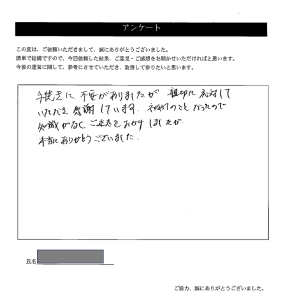 アンケート
この度は、ご依頼いただきまして、誠にありがとうございました。
簡単で結構ですので、今回依頼した結果、ご意見・ご感想をお聞かせいただければと思います。
今後の運営に関して、参考にさせていただき、改善して参りたいと思います。
手続きに不安がありましたが 親切に対応して
いただき感謝しています。初めてのことだったので
知識がなく ご迷惑をおかけしましたが
本当にありがとうございました。
氏名
ご協力、誠にありがとうございました。